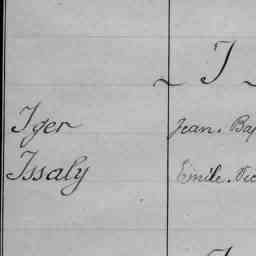 ~ I ~
Iger Jean. Bap
Issaly Emile. Vic